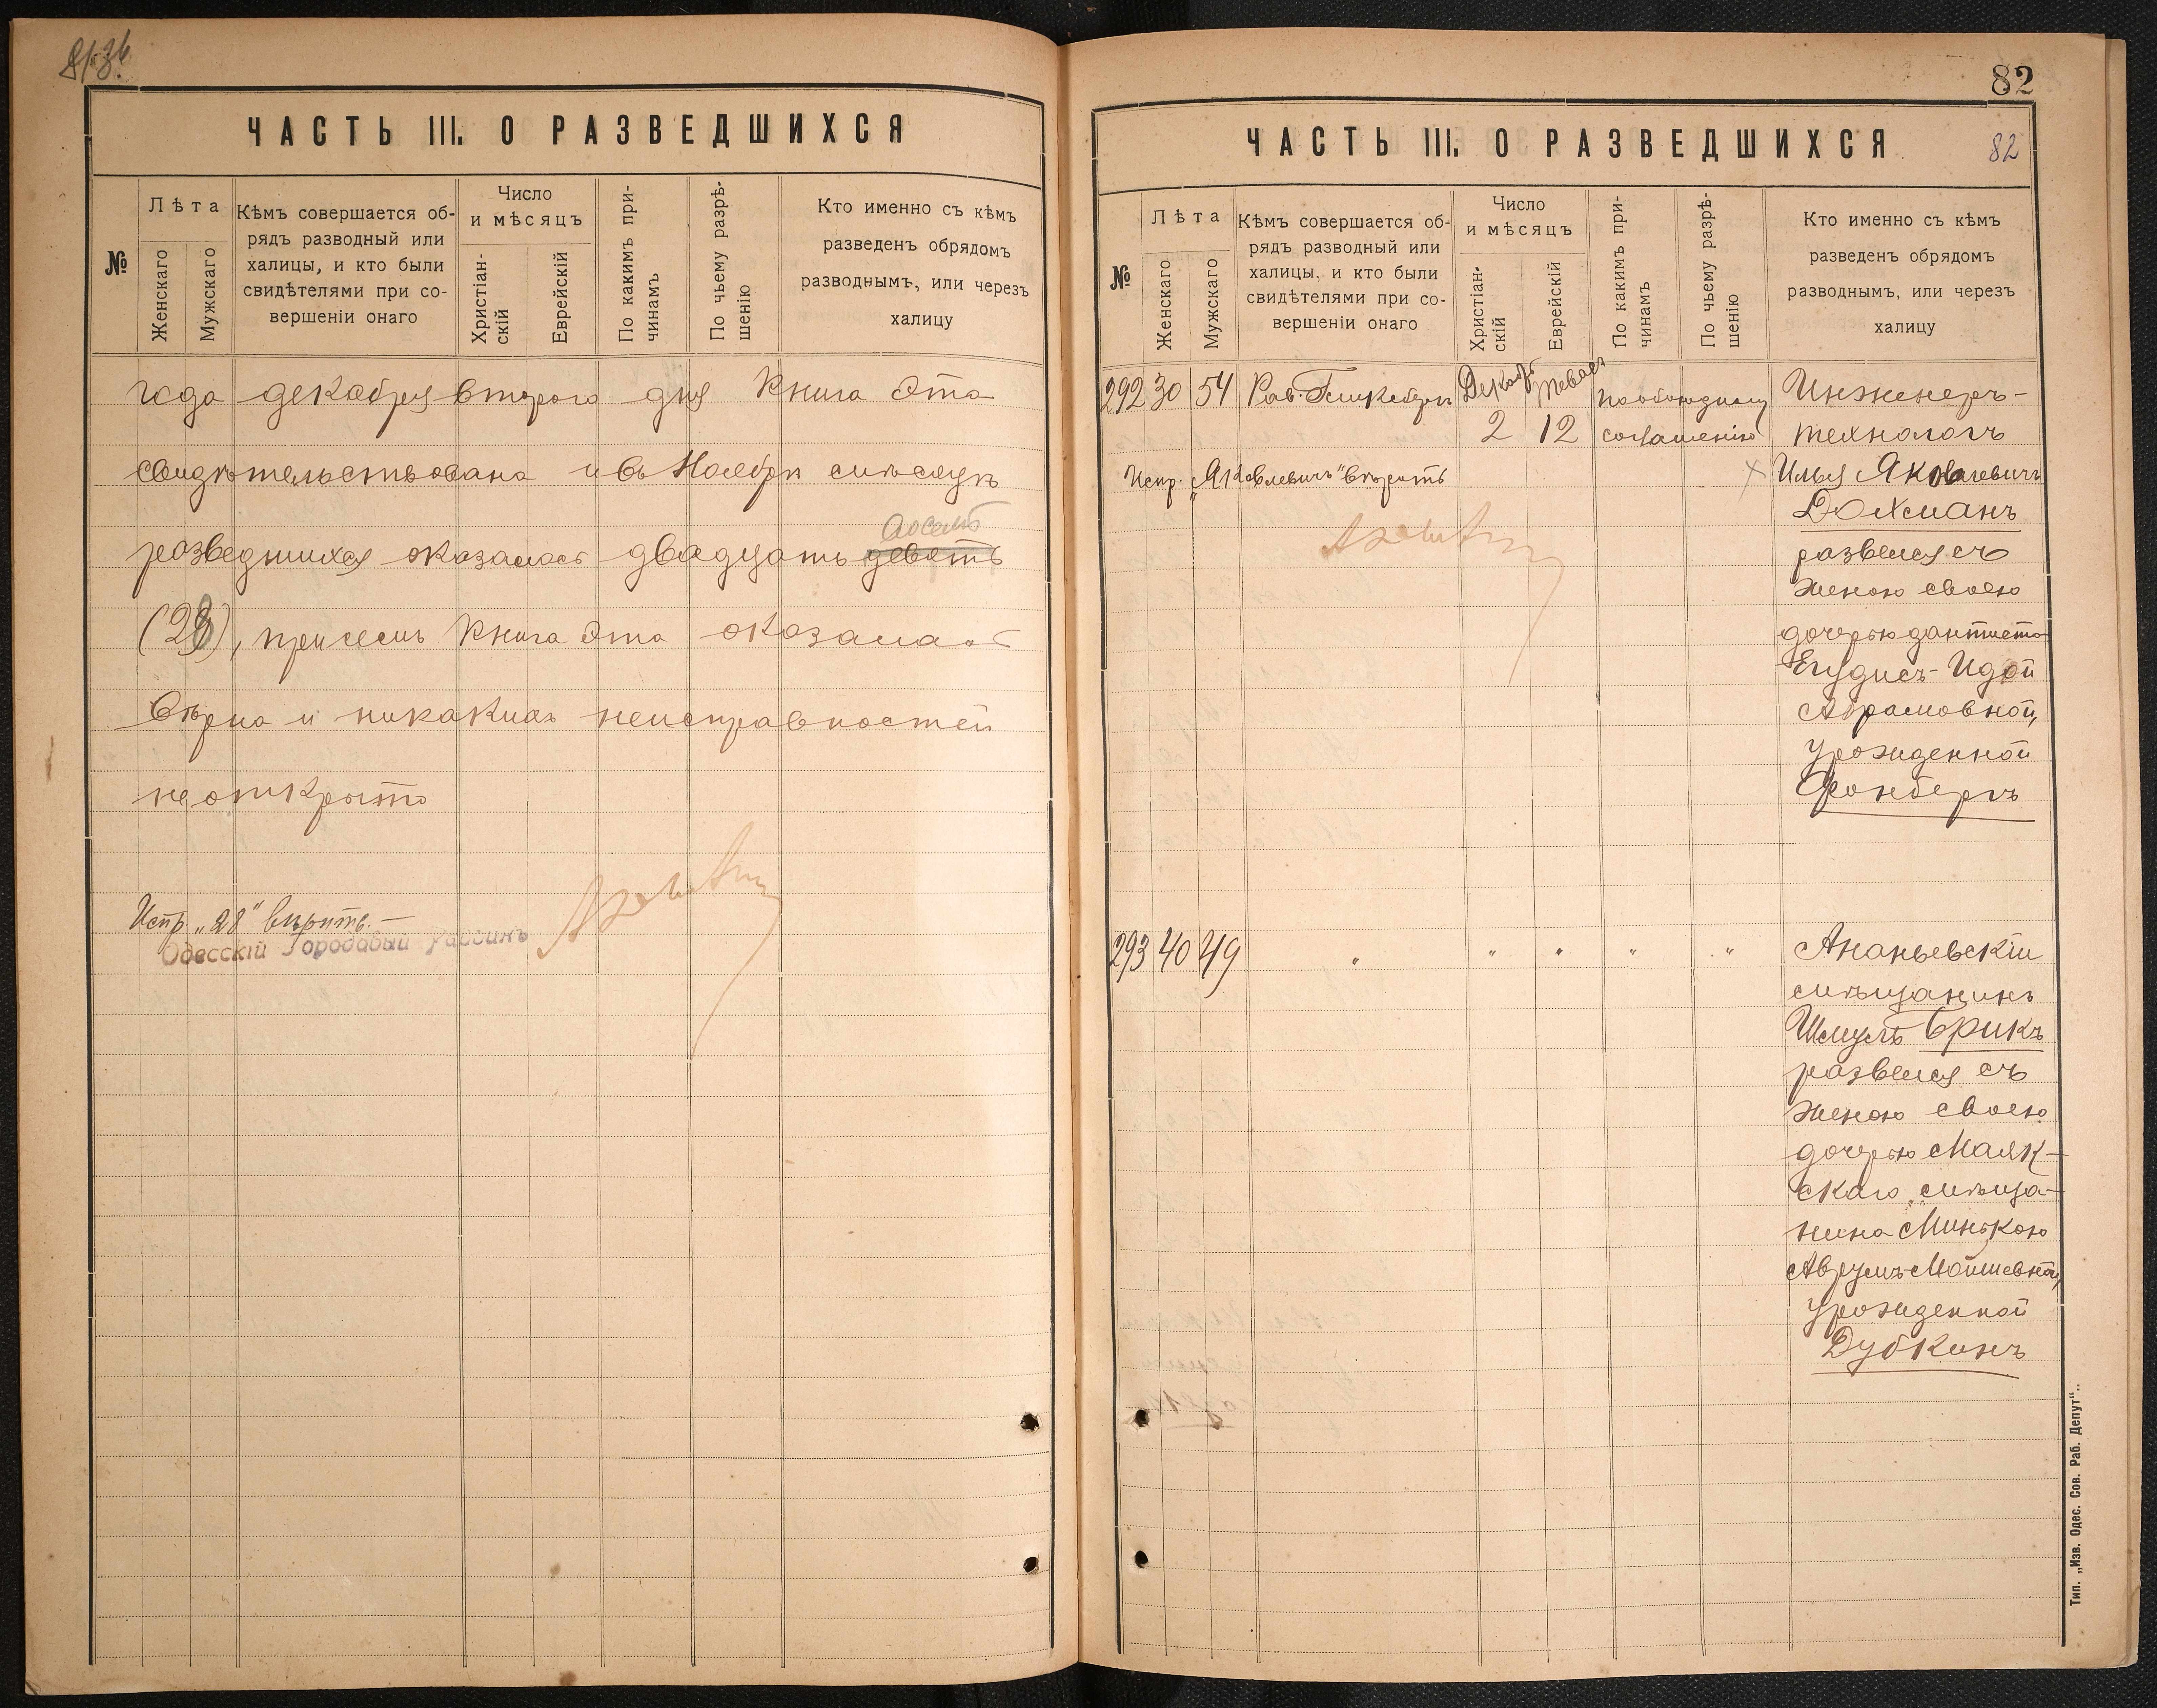 ЧАСТЬ III. О РАЗВЕДШИХСЯ
№
Лѣта
Женскаго
Мужскаго
Кѣмъ совершается об-
рядъ разводный или
халицы, и кто были
свидѣтелями при со-
вершеніи онаго
Число
и мѣсяцъ
Христіан-
скій
Еврейскій
По какимъ при-
чинамъ
По чьему разрѣ-
шенію
Кто именно съ кѣмъ
разведенъ обрядомъ
разводнымъ, или черезъ
халицу
года декабря второго дня Книга эта
свидѣтельствована и въ Ноябрѣ мѣсяцѣ
восемь
разведшихся оказалось двадцать девять
(28), причемъ Книга эта оказалась
вѣрна и никакихъ неисправностей
не открыто
Испр. „28" вѣрить.—
Одесскій Городовый Раввинъ
82
ЧАСТЬ III. О РАЗВЕДШИХСЯ
82
№
Лѣта
Женскаго
Мужскаго
Кѣмъ совершается об-
рядъ разводный или
халицы, и кто были
свидѣтелями при со-
вершеніи онаго
Число
и мѣсяцъ
Христіан-
скій
Еврейскій
По какимъ при-
чинамъ
По чьему разрѣ-
шенію
Кто именно съ кѣмъ
разведенъ обрядомъ
разводнымъ, или черезъ
халицу
292 30 54 Рав. Гликсбергъ Декабр 2 Тевас 12 по обоюдному соглашенію
Инженеръ-
технологъ
Илья Яковлевичъ
Дохманъ
развелся съ
женою своею
дочерью дантиста
Егудисъ-Идой
Абрамовной,
урожденной
Фонбергъ
Испр. „Яковлевичъ" вѣрить
293 40 49 " " " " "
Ананьевскій
мѣщанинъ
Шмуль Брикъ
развелся съ
женою своею
дочерью Маяк-
скаго мѣща-
нина Минькою
Аврумъ-Мойшевной,
урожденной
Дубкинъ
Тип. „Изв. Одес. Сов. Раб. Депут".